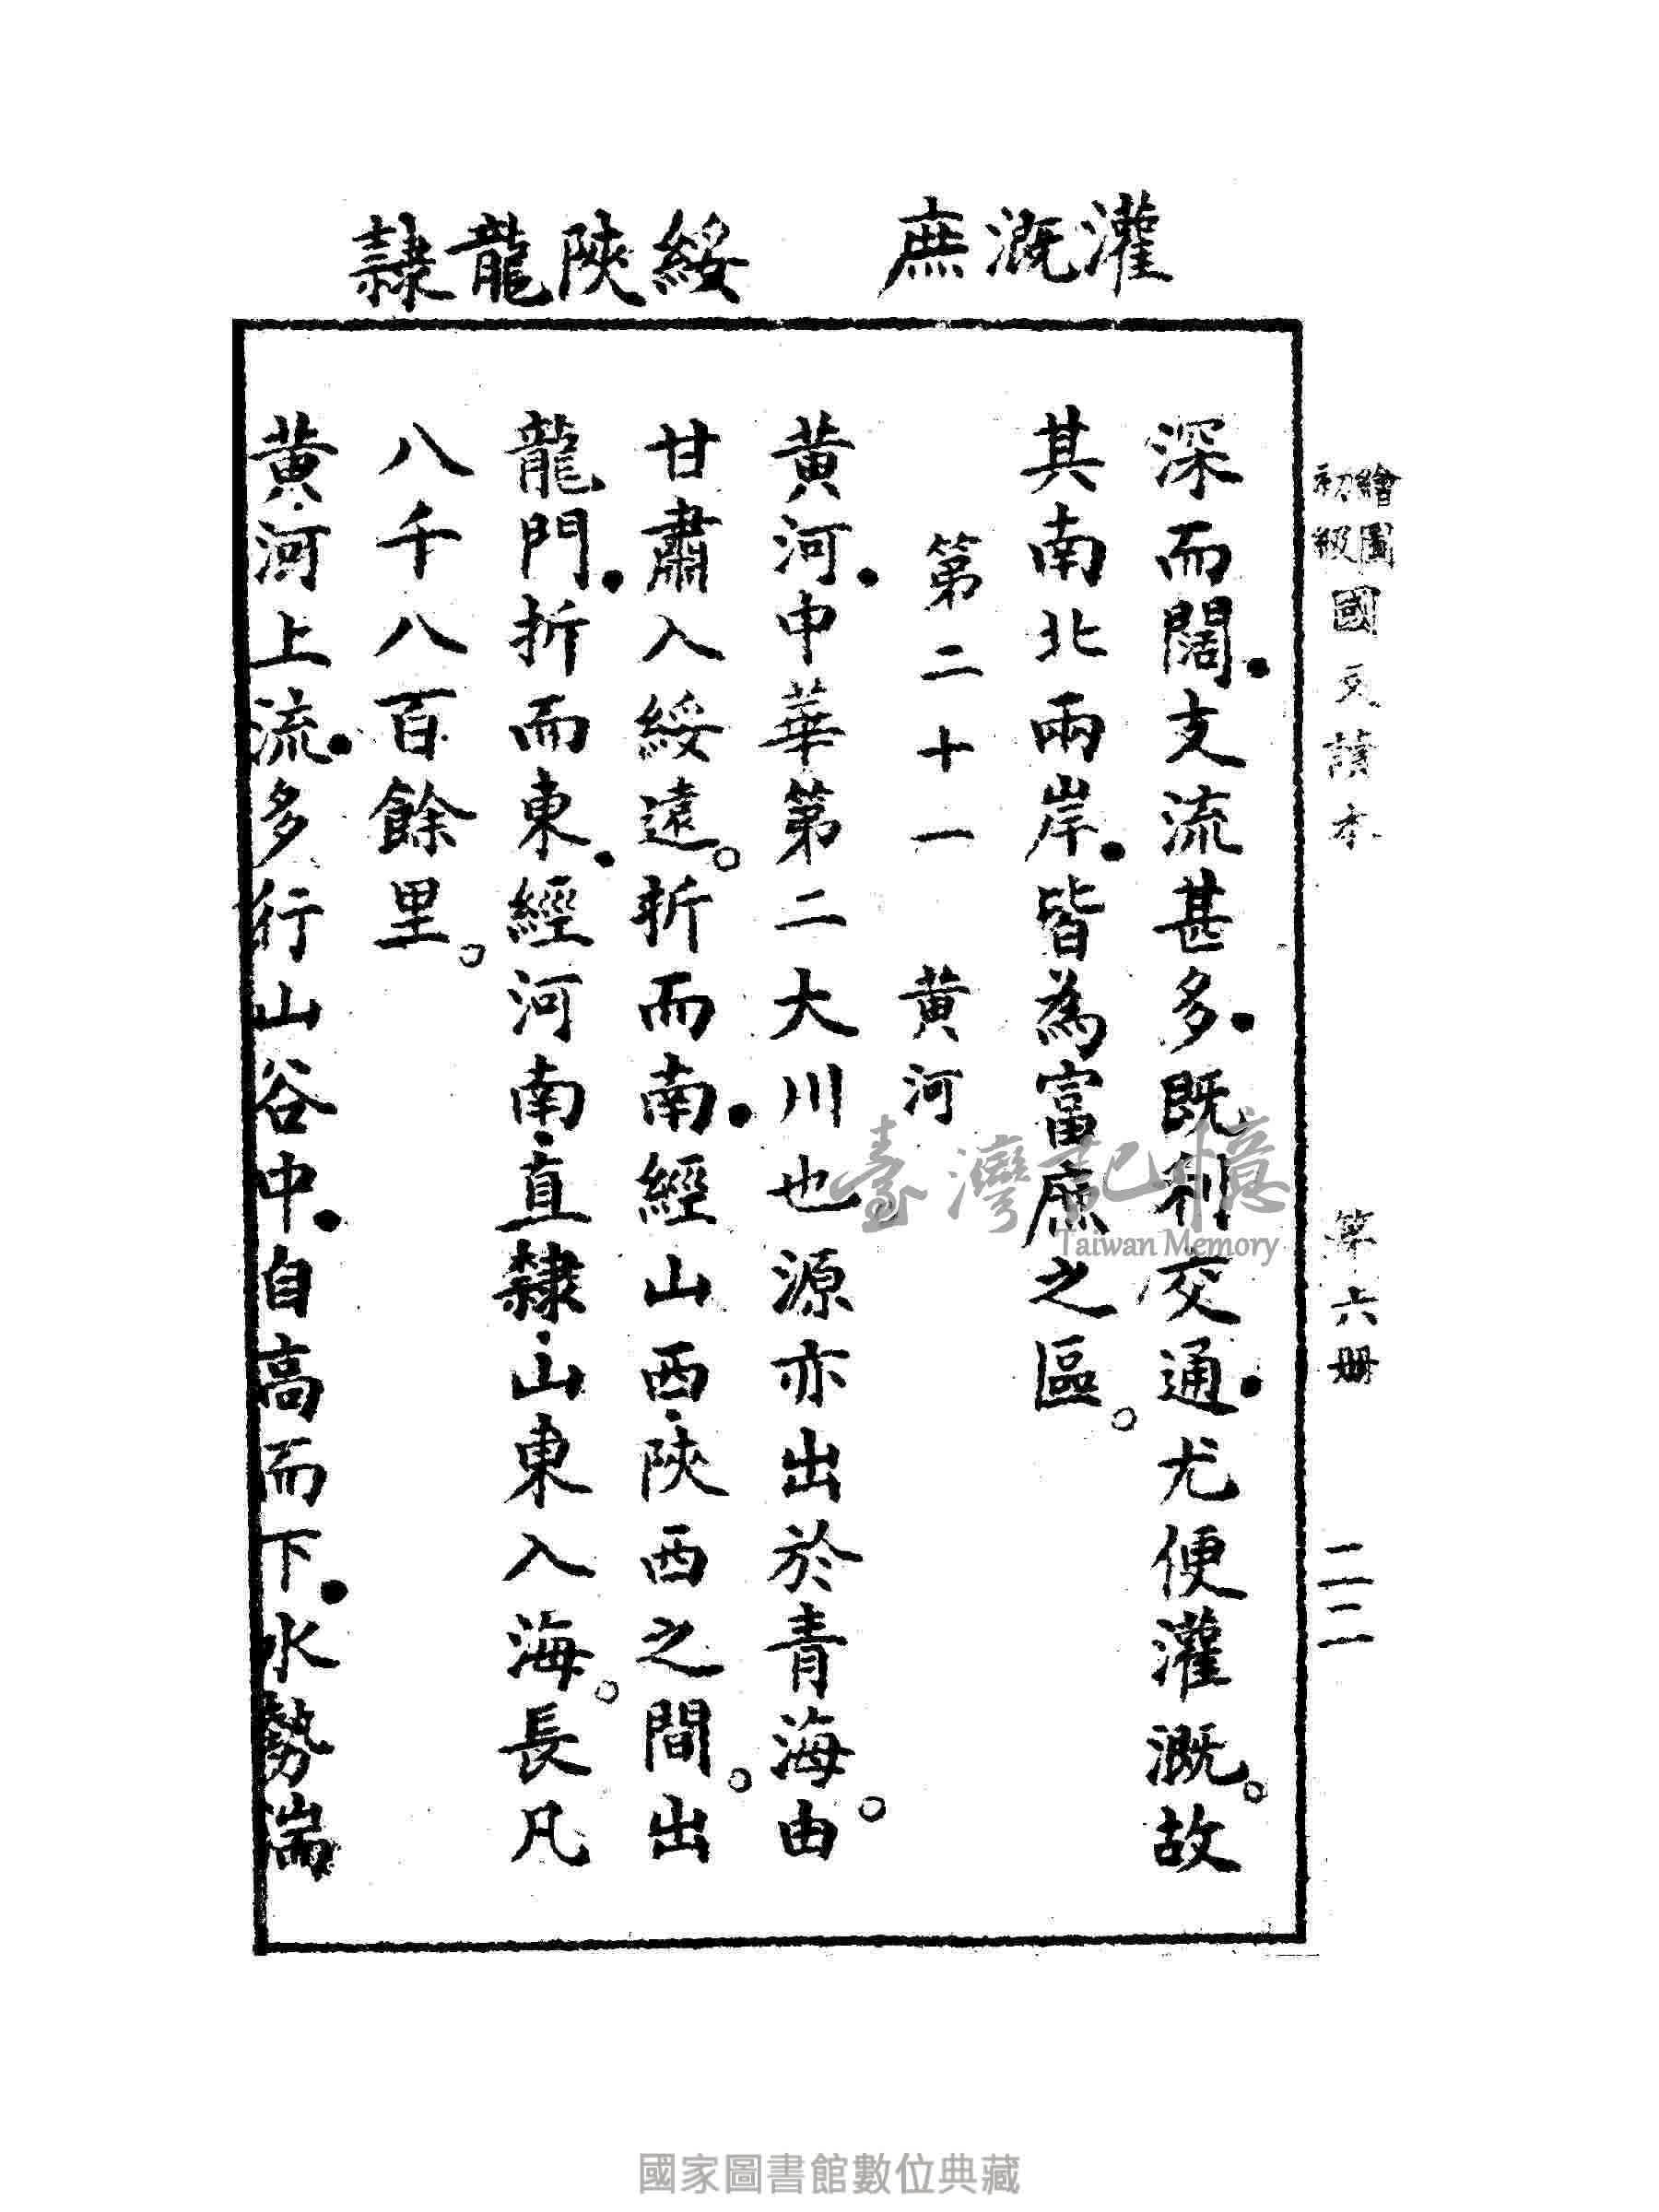 繪圖初級國文讀本 第六冊 二二
灌溉庶
綏陝龍隸
深而闊．支流甚多．既利交通．尤便灌溉。故
其南北兩岸．皆為富庶之區。
第二十一 黃河
黃河．中華第二大川也源亦出於青海。由
甘肅入綏遠。折而南．經山西．陝西之間。出
龍門．折而東．經河南．直隸．山東入海。長凡
八千八百餘里。
黃河上流．多行山谷中．自高而下．水勢湍
臺灣記憶
Taiwan Memory
國家圖書館數位典藏